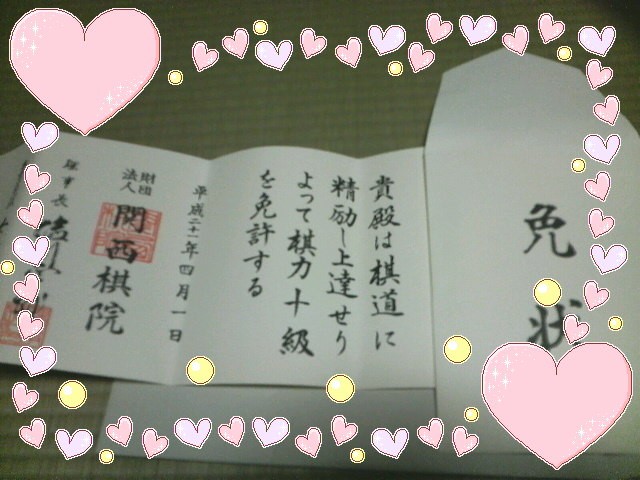 免状
貴殿は棋道に
精励し上達せり
よって棋力十級
を免許する
平成二十一年四月一日
財団
法人
関西棋院
理事長